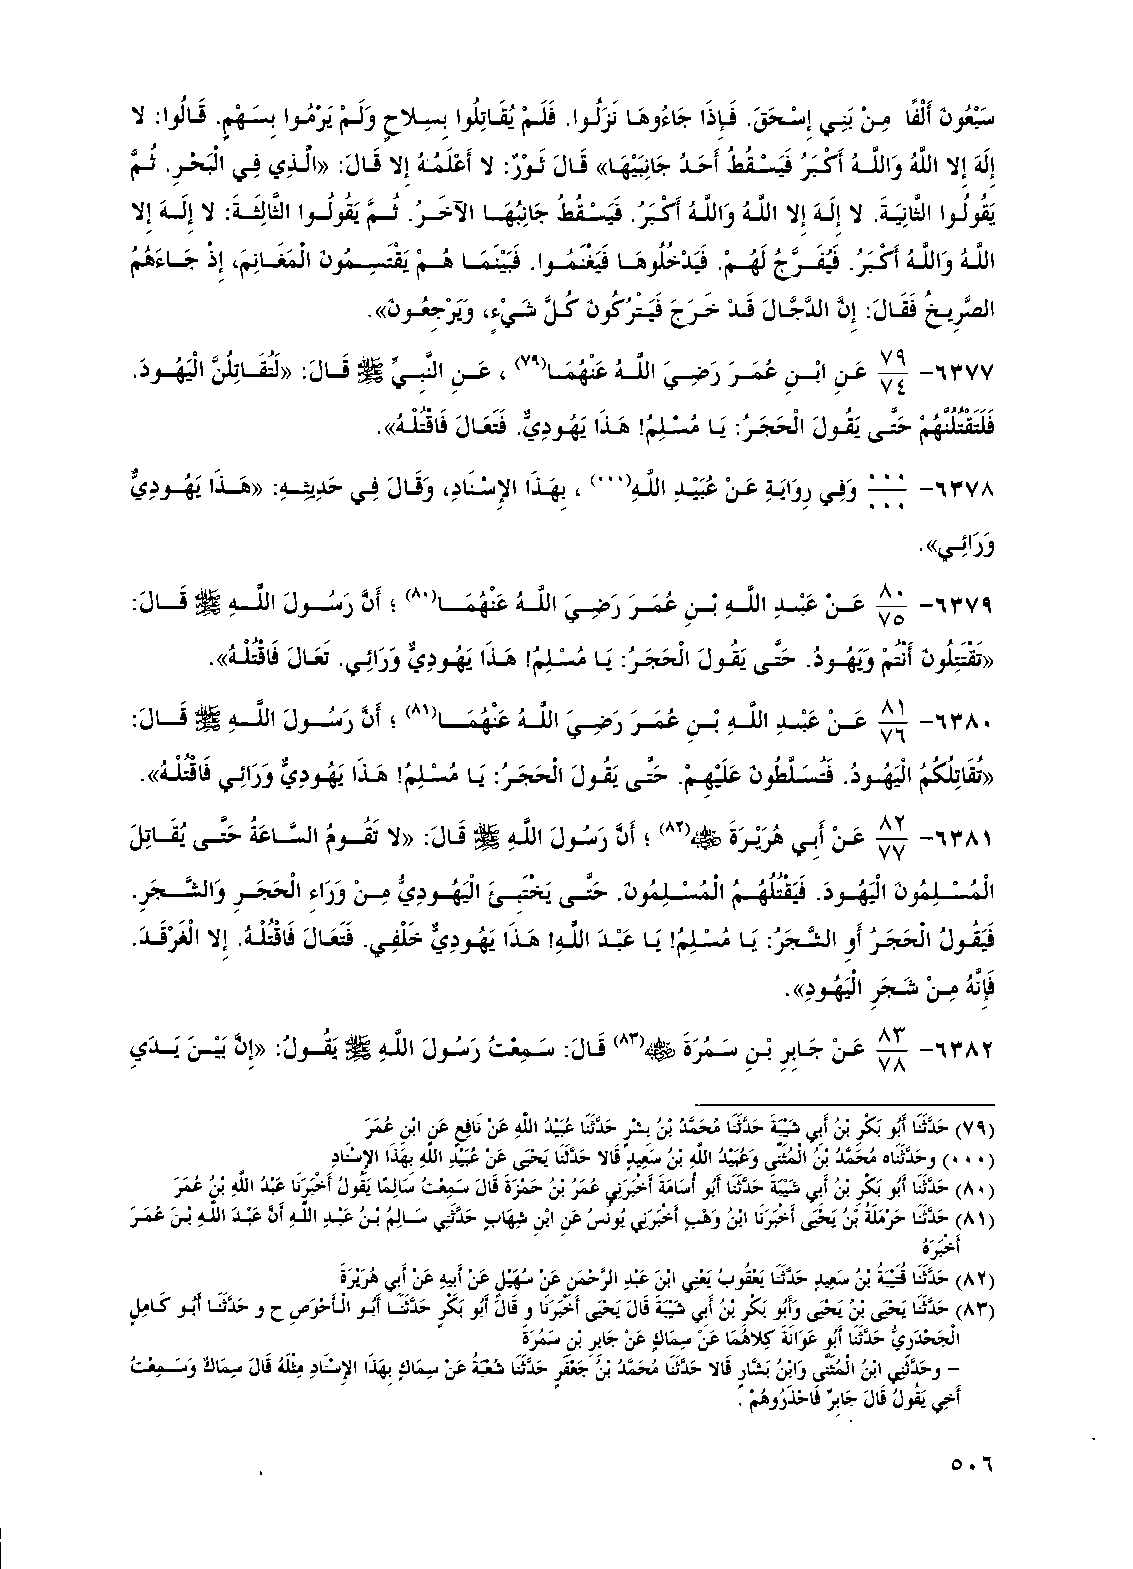 سَبْعُونَ أَلْفًا مِنْ بَنِي إِسْحَقَ. فَإِذَا جَاءُوهَا نَزَلُوا. فَلَمْ يُقَاتِلُوا بِسِلاحٍ وَلَمْ يَرْمُوا بِسَهْمٍ. قَالُوا: لا
إِلَهَ إِلا اللَّهُ وَاللَّهُ أَكْبَرُ فَيَسْقُطُ أَحَدُ جَانِبَيْهَا» قَالَ ثَوْرٌ: لا أَعْلَمُهُ إِلا قَالَ: «الَّذِي فِي الْبَحْرِ. ثُمَّ
يَقُولُوا الثَّانِيَةَ. لا إِلَهَ إِلا اللَّهُ وَاللَّهُ أَكْبَرُ. فَيَسْقُطُ جَانِبُهَا الآخَرُ. ثُمَّ يَقُولُوا الثَّالِثَةَ: لا إِلَهَ إِلا
اللَّهُ وَاللَّهُ أَكْبَرُ. فَيُفَرَّجُ لَهُمْ. فَيَدْخُلُوهَا فَيَغْنَمُوا. فَبَيْنَمَا هُمْ يَقْتَسِمُونَ الْمَغَانِمَ، إِذْ جَاءَهُمُ
الصَّرِيخُ فَقَالَ: إِنَّ الدَّجَّالَ قَدْ خَرَجَ فَيَتْرُكُونَ كُلَّ شَيْءٍ، وَيَرْجِعُونَ».
٦٣٧٧- ٧٩/٧٤ عَنِ ابْنِ عُمَرَ رَضِيَ اللَّهُ عَنْهُمَا(٧٩) ، عَنِ النَّبِيِّ ﷺ قَالَ: «لَتُقَاتِلُنَّ الْيَهُودَ.
فَلَتَقْتُلُنَّهُمْ حَتَّى يَقُولَ الْحَجَرُ: يَا مُسْلِمُ! هَذَا يَهُودِيٌّ. فَتَعَالَ فَاقْتُلْهُ».
٦٣٧٨- ٠٠٠/٠٠٠ وَفِي رِوَايَةٍ عَنْ عُبَيْدِ اللَّهِ(٠٠٠) ، بِهَذَا الإِسْنَادِ، وَقَالَ فِي حَدِيثِهِ: «هَذَا يَهُودِيٌّ
وَرَائِي».
٦٣٧٩- ٨٠/٧٥ عَنْ عَبْدِ اللَّهِ بْنِ عُمَرَ رَضِيَ اللَّهُ عَنْهُمَا(٨٠) ؛ أَنَّ رَسُولَ اللَّهِ ﷺ قَالَ:
«تَقْتَتِلُونَ أَنْتُمْ وَيَهُودُ. حَتَّى يَقُولَ الْحَجَرُ: يَا مُسْلِمُ! هَذَا يَهُودِيٌّ وَرَائِي. تَعَالَ فَاقْتُلْهُ».
٦٣٨٠- ٨١/٧٦ عَنْ عَبْدِ اللَّهِ بْنِ عُمَرَ رَضِيَ اللَّهُ عَنْهُمَا(٨١) ؛ أَنَّ رَسُولَ اللَّهِ ﷺ قَالَ:
«تُقَاتِلُكُمُ الْيَهُودُ. فَتُسَلَّطُونَ عَلَيْهِمْ. حَتَّى يَقُولَ الْحَجَرُ: يَا مُسْلِمُ! هَذَا يَهُودِيٌّ وَرَائِي فَاقْتُلْهُ».
٦٣٨١- ٨٢/٧٧ عَنْ أَبِي هُرَيْرَةَ ﷺ(٨٢) ؛ أَنَّ رَسُولَ اللَّهِ ﷺ قَالَ: «لا تَقُومُ السَّاعَةُ حَتَّى يُقَاتِلَ
الْمُسْلِمُونَ الْيَهُودَ. فَيَقْتُلُهُمُ الْمُسْلِمُونَ. حَتَّى يَخْتَبِئَ الْيَهُودِيُّ مِنْ وَرَاءِ الْحَجَرِ وَالشَّجَرِ.
فَيَقُولُ الْحَجَرُ أَوِ الشَّجَرُ: يَا مُسْلِمُ! يَا عَبْدَ اللَّهِ! هَذَا يَهُودِيٌّ خَلْفِي. فَتَعَالَ فَاقْتُلْهُ. إِلا الْغَرْقَدَ.
فَإِنَّهُ مِنْ شَجَرِ الْيَهُودِ».
٦٣٨٢- ٨٣/٧٨ عَنْ جَابِرِ بْنِ سَمُرَةَ ﷺ(٨٣) قَالَ: سَمِعْتُ رَسُولَ اللَّهِ ﷺ يَقُولُ: «إِنَّ بَيْنَ يَدَيِ
(٧٩) حَدَّثَنَا أَبُو بَكْرِ بْنُ أَبِي شَيْبَةَ حَدَّثَنَا مُحَمَّدُ بْنُ بِشْرٍ حَدَّثَنَا عُبَيْدُ اللَّهِ عَنْ نَافِعٍ عَنِ ابْنِ عُمَرَ
(٠٠٠) وحَدَّثَنَاه مُحَمَّدُ بْنُ الْمُثَنَّى وَعُبَيْدُ اللَّهِ بْنُ سَعِيدٍ قَالا حَدَّثَنَا يَحْيَى عَنْ عُبَيْدِ اللَّهِ بِهَذَا الإِسْنَادِ
(٨٠) حَدَّثَنَا أَبُو بَكْرِ بْنُ أَبِي شَيْبَةَ حَدَّثَنَا أَبُو أُسَامَةَ أَخْبَرَنِي عُمَرُ بْنُ حَمْزَةَ قَالَ سَمِعْتُ سَالِمًا يَقُولُ أَخْبَرَنَا عَبْدُ اللَّهِ بْنُ عُمَرَ
(٨١) حَدَّثَنَا حَرْمَلَةُ بْنُ يَحْيَى أَخْبَرَنَا ابْنُ وَهْبٍ أَخْبَرَنِي يُونُسُ عَنِ ابْنِ شِهَابٍ حَدَّثَنِي سَالِمُ بْنُ عَبْدِ اللَّهِ أَنَّ عَبْدَ اللَّهِ بْنَ عُمَرَ
أَخْبَرَهُ
(٨٢) حَدَّثَنَا قُتَيْبَةُ بْنُ سَعِيدٍ حَدَّثَنَا يَعْقُوبُ يَعْنِي ابْنَ عَبْدِ الرَّحْمَنِ عَنْ سُهَيْلٍ عَنْ أَبِيهِ عَنْ أَبِي هُرَيْرَةَ
(٨٣) حَدَّثَنَا يَحْيَى بْنُ يَحْيَى وَأَبُو بَكْرِ بْنُ أَبِي شَيْبَةَ قَالَ يَحْيَى أَخْبَرَنَا و قَالَ أَبُو بَكْرٍ حَدَّثَنَا أَبُو الْأَحْوَصِ ح و حَدَّثَنَا أَبُو كَامِلٍ
الْجَحْدَرِيُّ حَدَّثَنَا أَبُو عَوَانَةَ كِلاهُمَا عَنْ سِمَاكٍ عَنْ جَابِرِ بْنِ سَمُرَةَ
- وحَدَّثَنِي ابْنُ الْمُثَنَّى وَابْنُ بَشَّارٍ قَالا حَدَّثَنَا مُحَمَّدُ بْنُ جَعْفَرٍ حَدَّثَنَا شُعْبَةُ عَنْ سِمَاكٍ بِهَذَا الإِسْنَادِ مِثْلَهُ قَالَ سِمَاكٌ وَسَمِعْتُ
أَخِي يَقُولُ قَالَ جَابِرٌ فَاحْذَرُوهُمْ .
٥٠٦